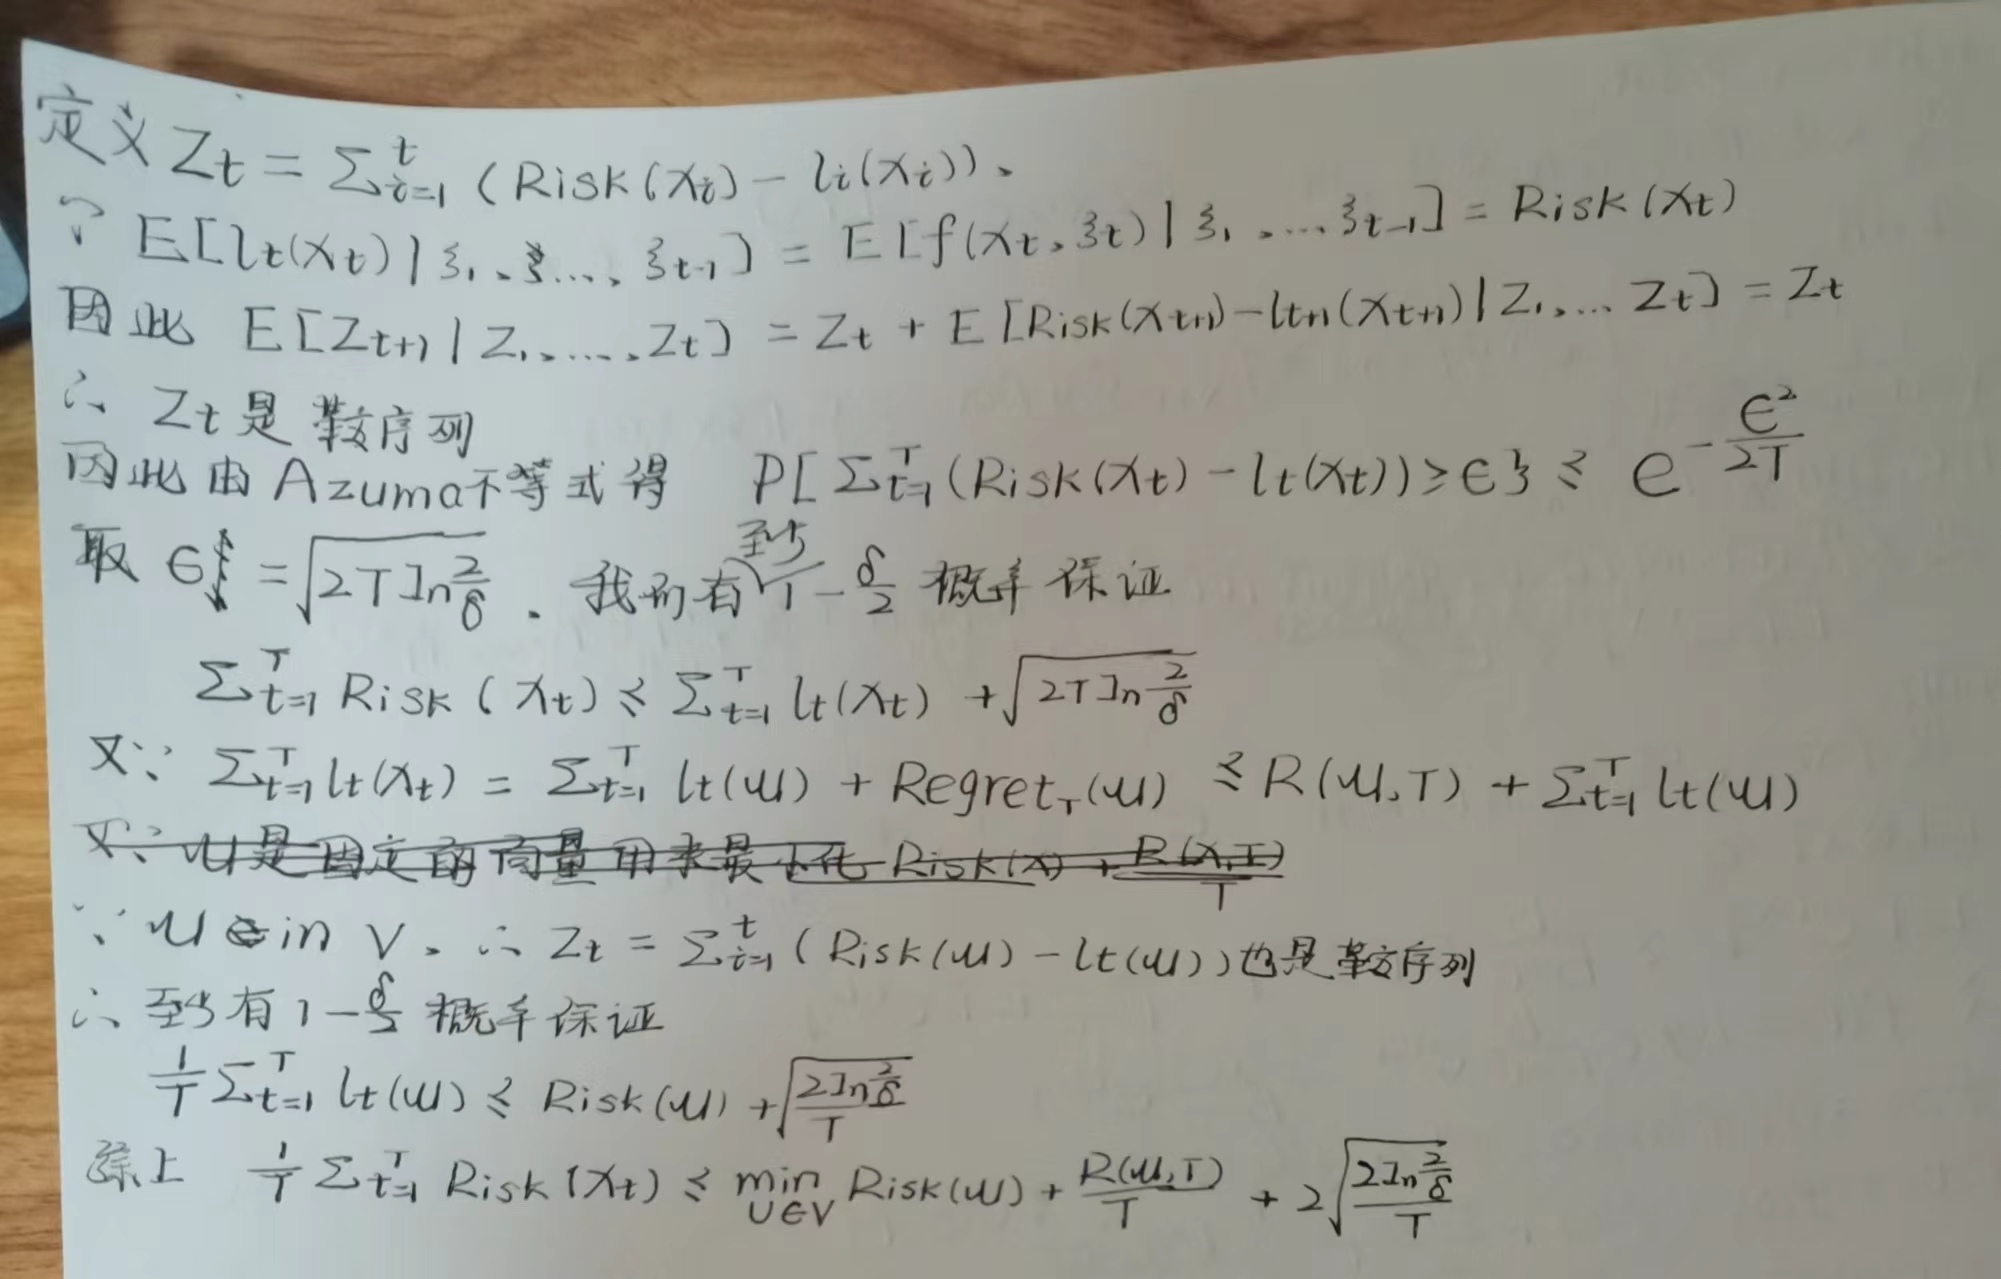 定义 Zt = Σ_{i=1}^{t} (Risk(Xi) - li(Xi)).
∵ E[lt(Xt) | ξ1, ..., ξt-1] = E[f(Xt, ξt) | ξ1, ... ξt-1] = Risk(Xt)
因此 E[Zt+1 | Z1, ..., Zt] = Zt + E[Risk(Xt+1) - lt+1(Xt+1) | Z1, ... Zt] = Zt
∴ Zt是鞅序列
因此由Azuma不等式得 P[Σ_{t=1}^{T} (Risk(Xt) - lt(Xt)) ≥ ϵ} ≤ e^{-ϵ²/2T}
取 ϵ = √(2T ln 2/δ) . 我们有至少 1 - δ/2 概率保证
Σ_{t=1}^{T} Risk(Xt) ≤ Σ_{t=1}^{T} lt(Xt) + √(2T ln 2/δ)
又∵ Σ_{t=1}^{T} lt(Xt) = Σ_{t=1}^{T} lt(u) + Regret_T(u) ≤ R(u,T) + Σ_{t=1}^{T} lt(u)
又∵ u是固定的向量用来最小化 Risk(X) + R(X,T)/T
∵ u in V. ∴ Zt = Σ_{i=1}^{t} (Risk(u) - lt(u))也是鞅序列
∴ 至少有 1 - δ/2 概率保证
1/T Σ_{t=1}^{T} lt(u) ≤ Risk(u) + √(2 ln 2/δ / T)
综上 1/T Σ_{t=1}^{T} Risk(Xt) ≤ min_{U∈V} Risk(u) + R(u,T)/T + 2√(2 ln 2/δ / T)